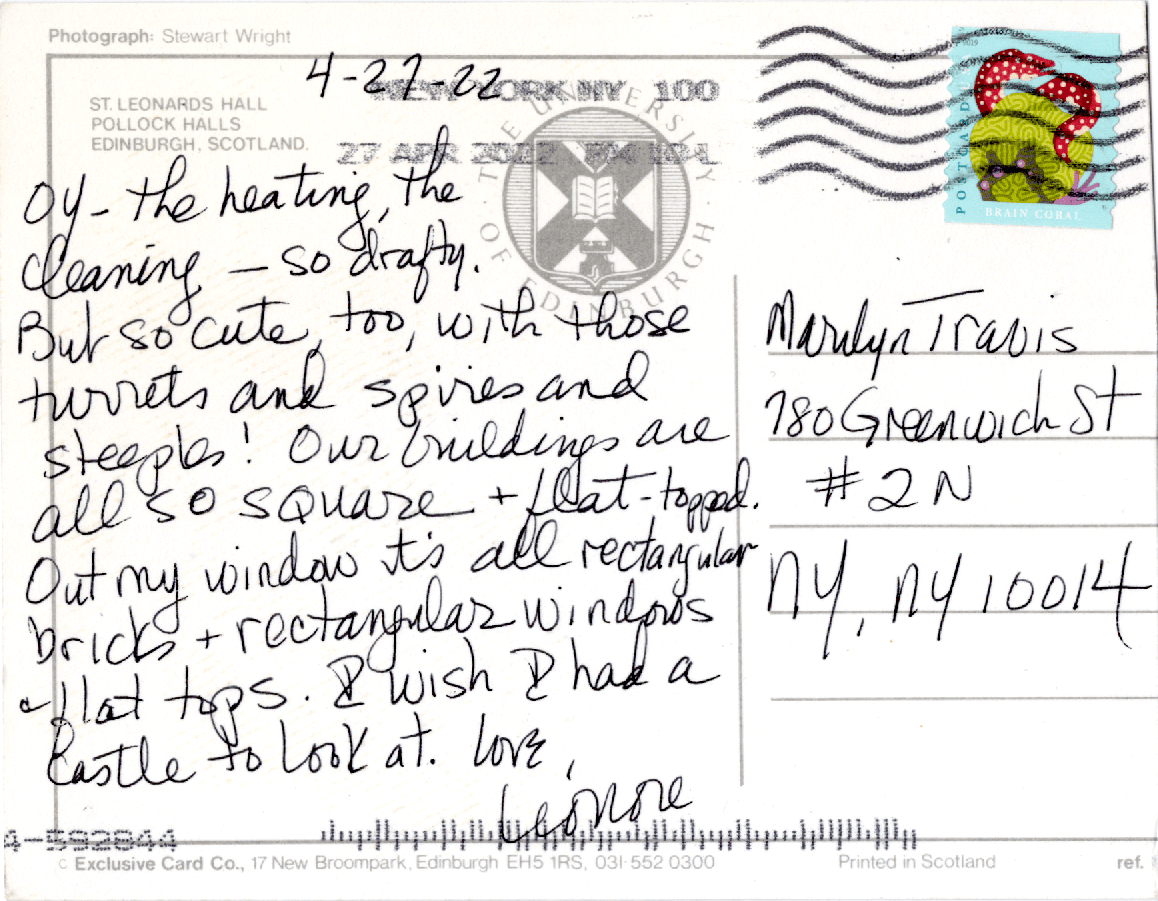 Photograph: Stewart Wright
4-27-22
NEW YORK NY 100
27 APR 2022 PM
ST. LEONARDS HALL
POLLOCK HALLS
EDINBURGH, SCOTLAND.
THE UNIVERSITY OF EDINBURGH
2019
POSTCARD
BRAIN CORAL
Oy - the heating, the
cleaning - so drafty.
But so cute, too, with those
turrets and spires and
steeples! Our buildings are
all so square + flat-topped.
Out my window it's all rectangular
bricks + rectangular windows
+ flat tops. I wish I had a
Castle to look at. Love,
Leonore
Marilyn Travis
780 Greenwich St
#2N
NY, NY 10014
4-592844
c Exclusive Card Co., 17 New Broompark, Edinburgh EH5 1RS, 031·552 0300
Printed in Scotland
ref.